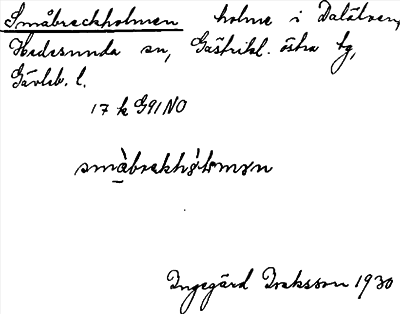 Småbreckholmen holme i Dalälven,
Hedesunda sn, Gästrikl. östra tg,
Gävleb. l.
17 k G91 NO
småbrekhɔ̀ɫmɘn
Ingegärd Iraksson 1930